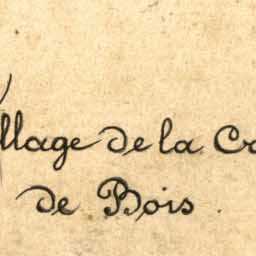 llage de la Cr
de Bois.